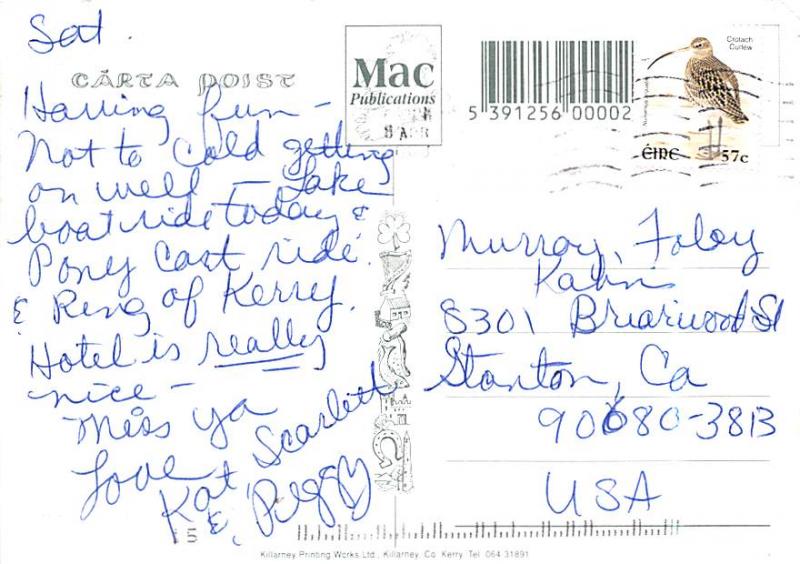 Sat.
CÁRTA POIST
Having fun -
Not to cold getting
on well - Lake
boat ride today &
Pony Cart ride.
& Ring of Kerry.
Hotel is really
nice -
Miss ya
Love
Kat Scarlett
& Peggy
15
Mac
Publications
5 391256 00002
Crotach
Curlew
ÉIRE 57c
Murray, Foley
Kahn
8301 Briarwood St
Stanton, Ca
90680-3813
USA
Killarney Printing Works Ltd., Killarney, Co Kerry Tel 064 31891